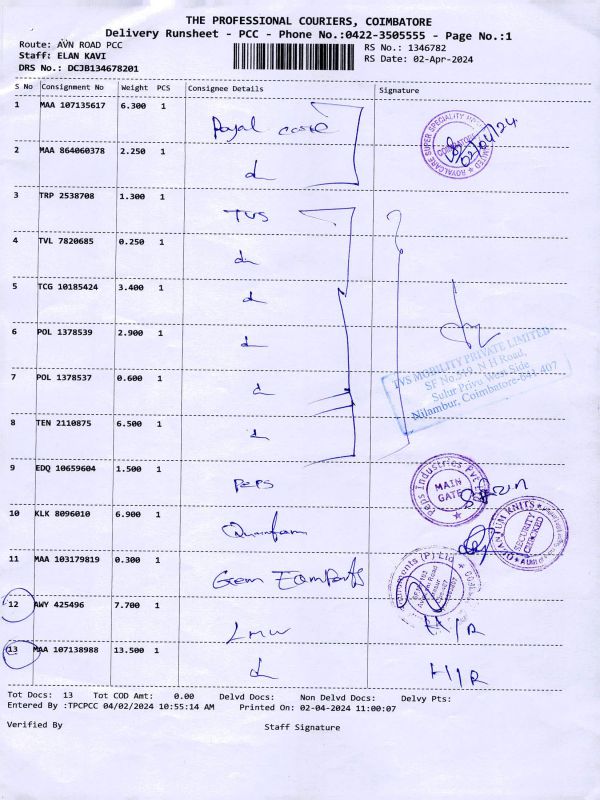 THE PROFESSIONAL COURIERS, COIMBATORE
Delivery Runsheet - PCC - Phone No.:0422-3505555 - Page No.:1
Route: AVN ROAD PCC RS No.: 1346782
Staff: ELAN KAVI RS Date: 02-Apr-2024
DRS No.: DCJB134678201
S No Consignment No Weight PCS Consignee Details Signature
1 MAA 107135617 6.300 1 Royal care
02/04/24
2 MAA 864060378 2.250 1
3 TRP 2538708 1.300 1 TVS
4 TVL 7820685 0.250 1
5 TCG 10185424 3.400 1
6 POL 1378539 2.900 1
TVS MOBILITY PRIVATE LIMITED
SF No.519, N H Road,
Sulur Privu West Side
Nilambur, Coimbatore-641 407
7 POL 1378537 0.600 1
8 TEN 2110875 6.500 1
9 EDQ 10659604 1.500 1 PEPS
Peps Industries Pvt
MAIN
GATE
10 KLK 8096010 6.900 1
QUANTUM KNITS
SECURITY
CHECKED
11 MAA 103179819 0.300 1 Gem
12 AWY 425496 7.700 1 LMW H/R
13 MAA 107138988 13.500 1 H/R
Tot Docs: 13 Tot COD Amt: 0.00 Delvd Docs: Non Delvd Docs: Delvy Pts:
Entered By :TPCPCC 04/02/2024 10:55:14 AM Printed On: 02-04-2024 11:00:07
Verified By Staff Signature